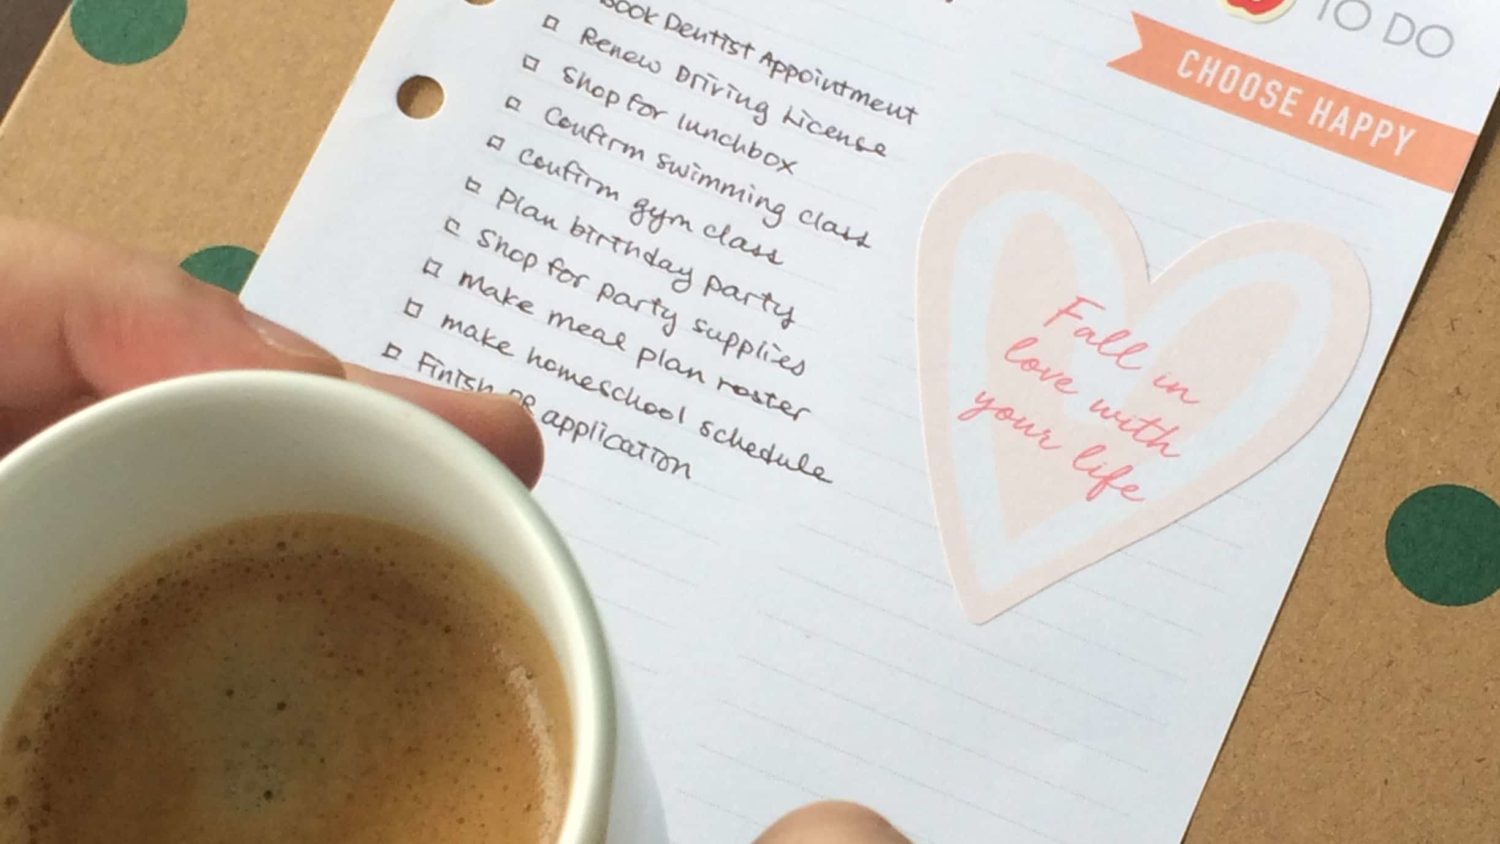 TO DO
CHOOSE HAPPY
Book Dentist Appointment
Renew Driving License
Shop for lunchbox
Confirm swimming class
Confirm gym class
Plan birthday party
Shop for party supplies
make meal plan roster
make homeschool schedule
Finish application
Fall in
love with
your life